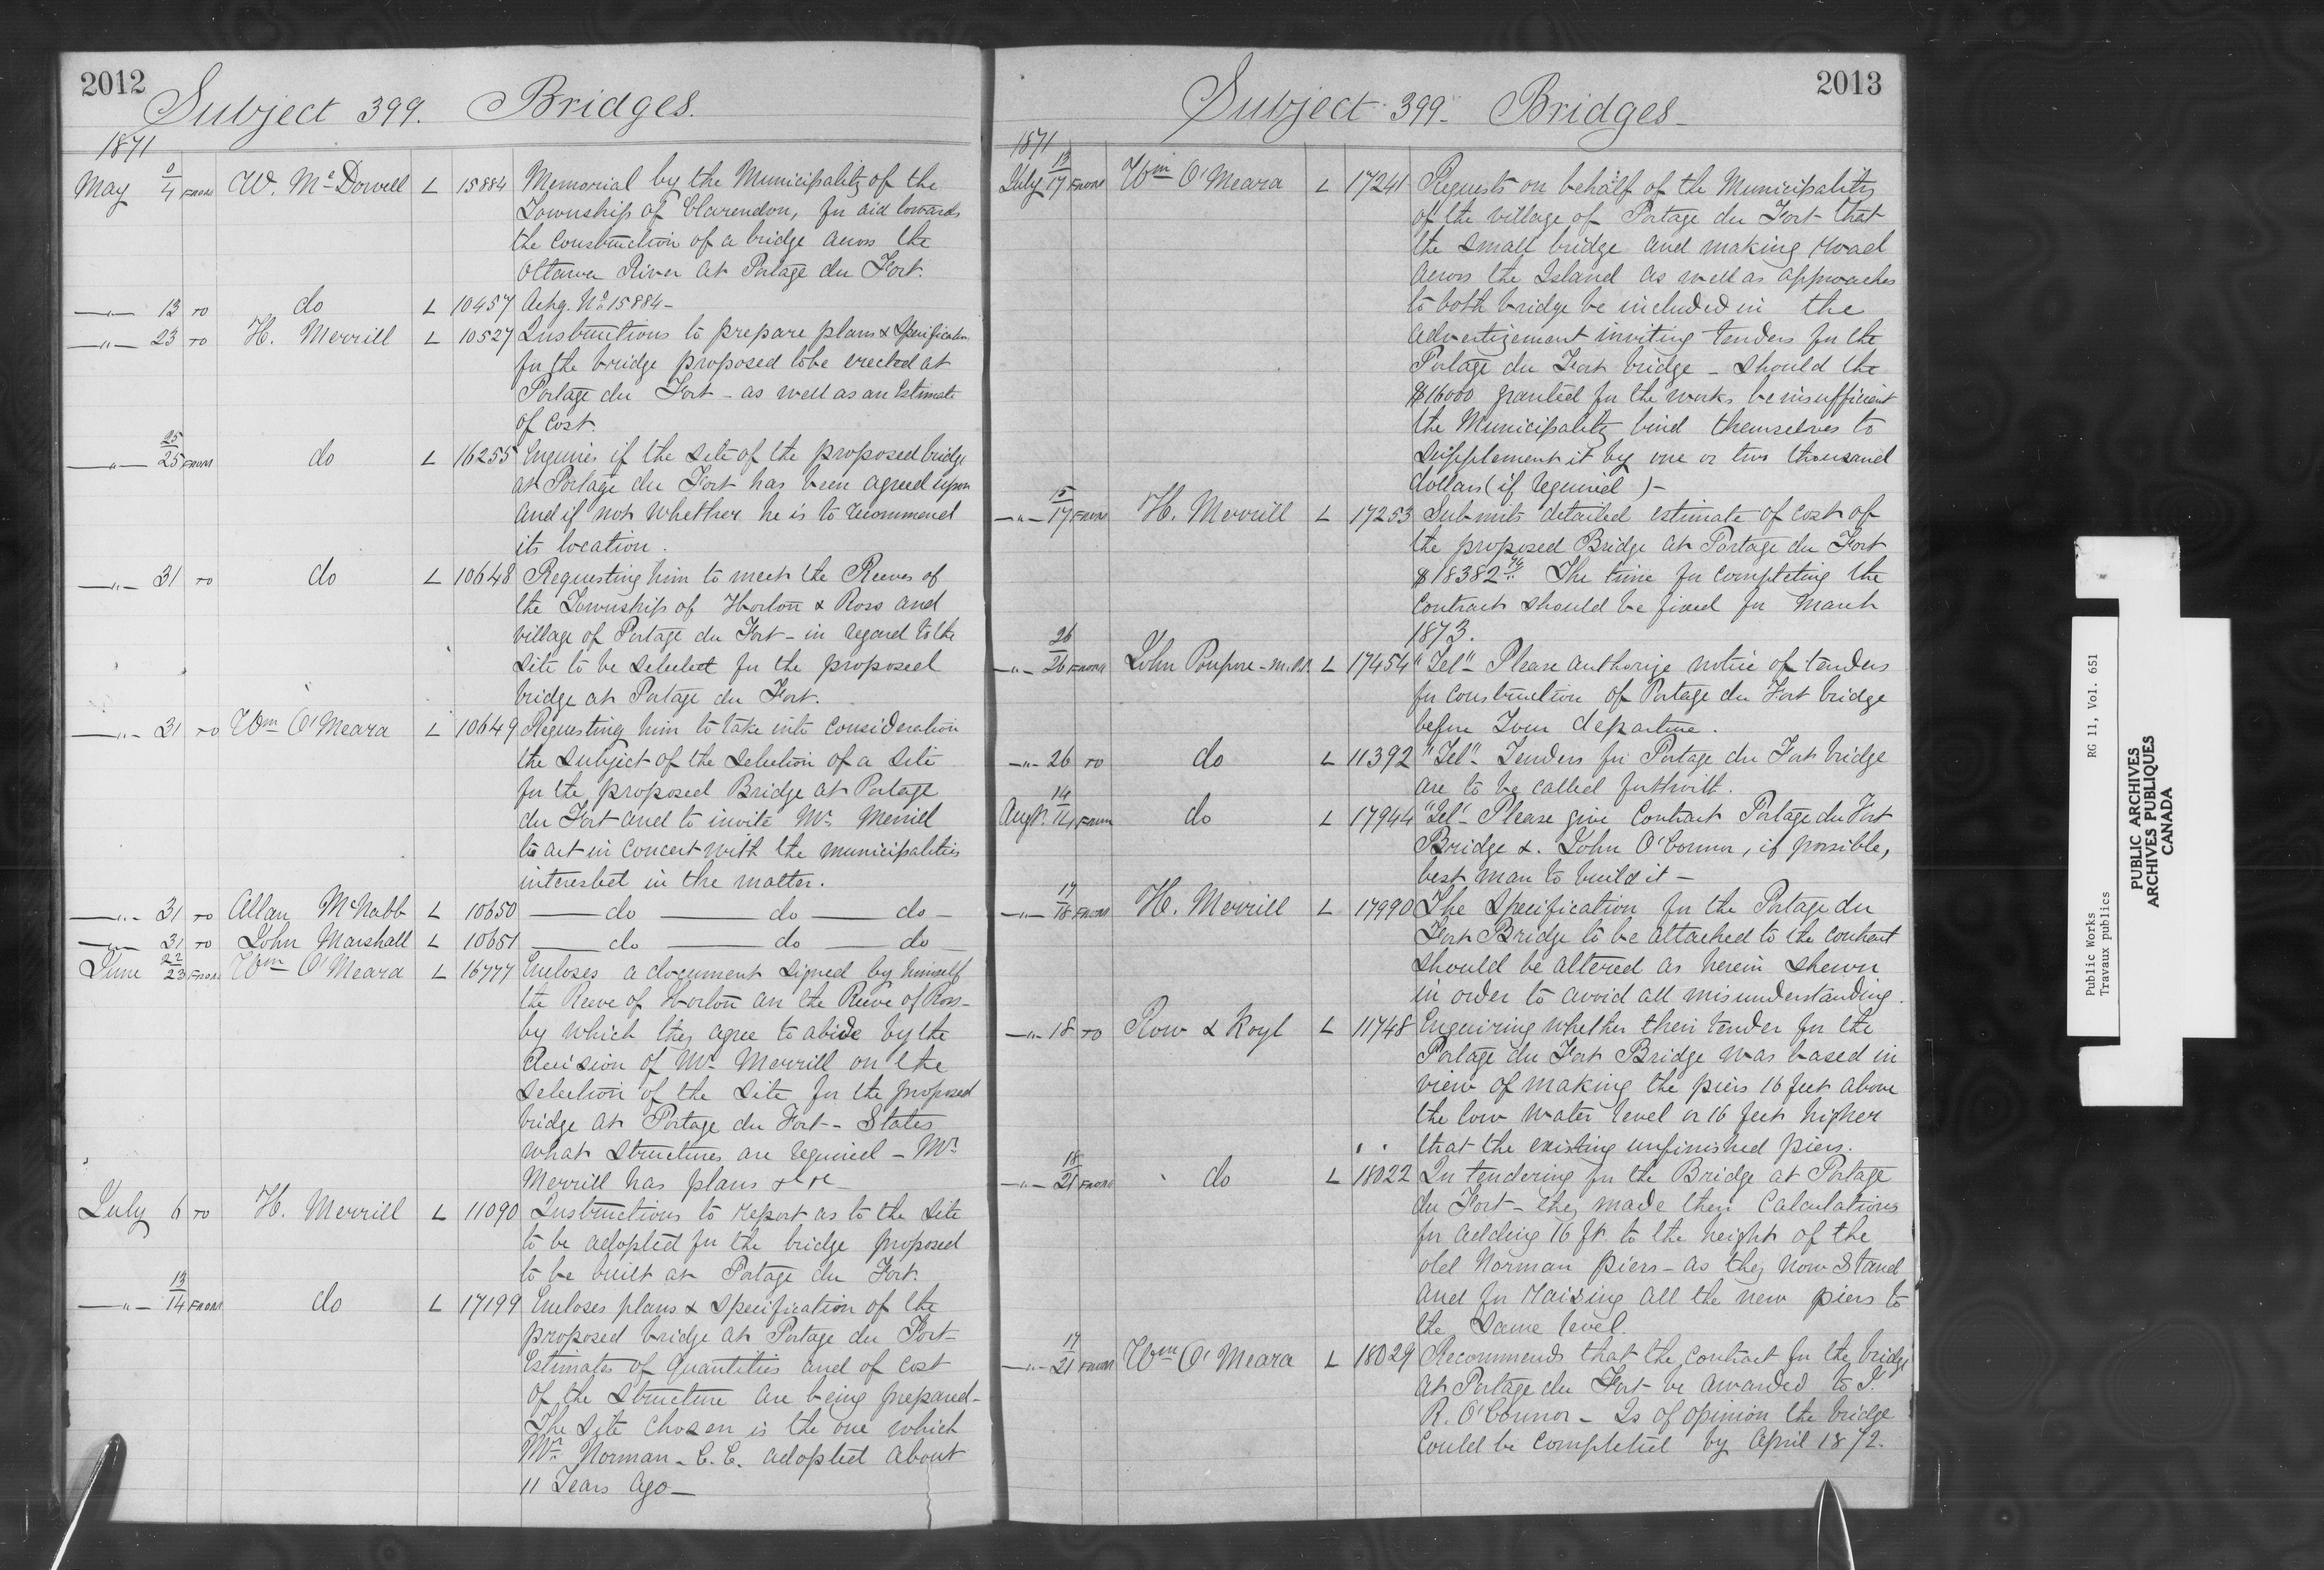 2012
Subject 399. Bridges.
1871
May 4 FROM W. McDowell L 15884 Memorial by the Municipality of the
Township of Clarendon, for aid towards
the construction of a bridge across the
Ottawa River at Portage du Fort.
—"— 13 TO do L 10457 Ackg. No 15884 —
—"— 23 TO H. Merrill L 10527 Instructions to prepare plans & Specification
for the bridge proposed to be erected at
Portage du Fort — as well as an Estimate
of Cost.
—"— 25/25 FROM do L 16255 Enquires if the site of the proposed bridge
at Portage du Fort has been agreed upon
and if not whether he is to recommend
its location.
—"— 31 TO do L 10648 Requesting him to meet the Reeves of
the Township of Horton & Ross and
village of Portage du Fort — in regard to the
site to be selected for the proposed
bridge at Portage du Fort.
—"— 31 TO Wm O'Meara L 10649 Requesting him to take into consideration
the subject of the selection of a site
for the proposed Bridge at Portage
du Fort and to invite Mr. Merrill
to act in concert with the municipalities
interested in the matter.
—"— 31 TO Allan McNabb L 10650 — do — do — do —
—"— 31 TO John Marshall L 10651 — do — do — do —
June 22/23 FROM Wm O'Meara L 16777 Encloses a document signed by himself
the Reeve of Horton an the Reeve of Ross —
by which they agree to abide by the
decision of Mr. Merrill on the
selection of the site for the proposed
bridge at Portage du Fort — States
what structures are required — Mr.
Merrill has plans &c &c —
July 6 TO H. Merrill L 11090 Instructions to report as to the site
to be adopted for the bridge proposed
to be built at Portage du Fort.
—"— 13/14 FROM do L 17199 Encloses plans & specification of the
proposed bridge at Portage du Fort —
Estimates of quantities and of cost
of the structure are being prepared —
The site chosen is the one which
Mr. Norman — C.E. adopted about
11 Years ago —
2013
Subject 399 — Bridges —
1871
July 13/17 FROM Wm O'Meara L 17241 Requests on behalf of the Municipality
of the village of Portage du Fort that
the small bridge and making road
across the Island as well as approaches
to both bridge be included in the
advertizement inviting tenders for the
Portage du Fort bridge — should the
$16000 granted for the works be insufficient
the Municipality bind themselves to
supplement it by one or two thousand
dollars (if required) —
—"— 15/17 FROM H. Merrill L 17253 Submits detailed estimate of cost of
the proposed Bridge at Portage du Fort
$18382 The time for completing the
contract should be fixed for March
1873.
—"— 26/26 FROM John Poupore — M.P.P. L 17454 "Tel" Please authorize notice of tenders
for construction of Portage du Fort bridge
before Your departure.
—"— 26 TO do L 11392 "Tel" — Tenders for Portage du Fort bridge
are to be called forthwith.
Augt. 14/14 FROM do L 17944 "Tel" — Please give Contract Portage du Fort
Bridge &. John O'Connor, if possible,
best man to build it —
—"— 17/18 FROM H. Merrill L 17990 The Specification for the Portage du
Fort Bridge to be attached to the contract
should be altered as herein shewn
in order to avoid all misunderstanding.
—"— 18 TO Row & Koyl L 11748 Enquiring whether their tender for the
Portage du Fort Bridge was based in
view of making the piers 16 feet above
the low water level or 16 feet higher
that the existing unfinished piers.
—"— 18/21 FROM do L 18022 In tendering for the Bridge at Portage
du Fort — they made their Calculations
for adding 16 ft. to the height of the
old Norman piers — as they now Stand
and for raising all the new piers to
the same level.
—"— 17/21 FROM Wm O'Meara L 18029 Recommends that the contract for the bridge
at Portage du Fort be awarded to J.
R. O'Connor — Is of opinion the bridge
could be completed by April 1872.
Public Works RG 11, Vol. 651
Travaux publics
PUBLIC ARCHIVES
ARCHIVES PUBLIQUES
CANADA